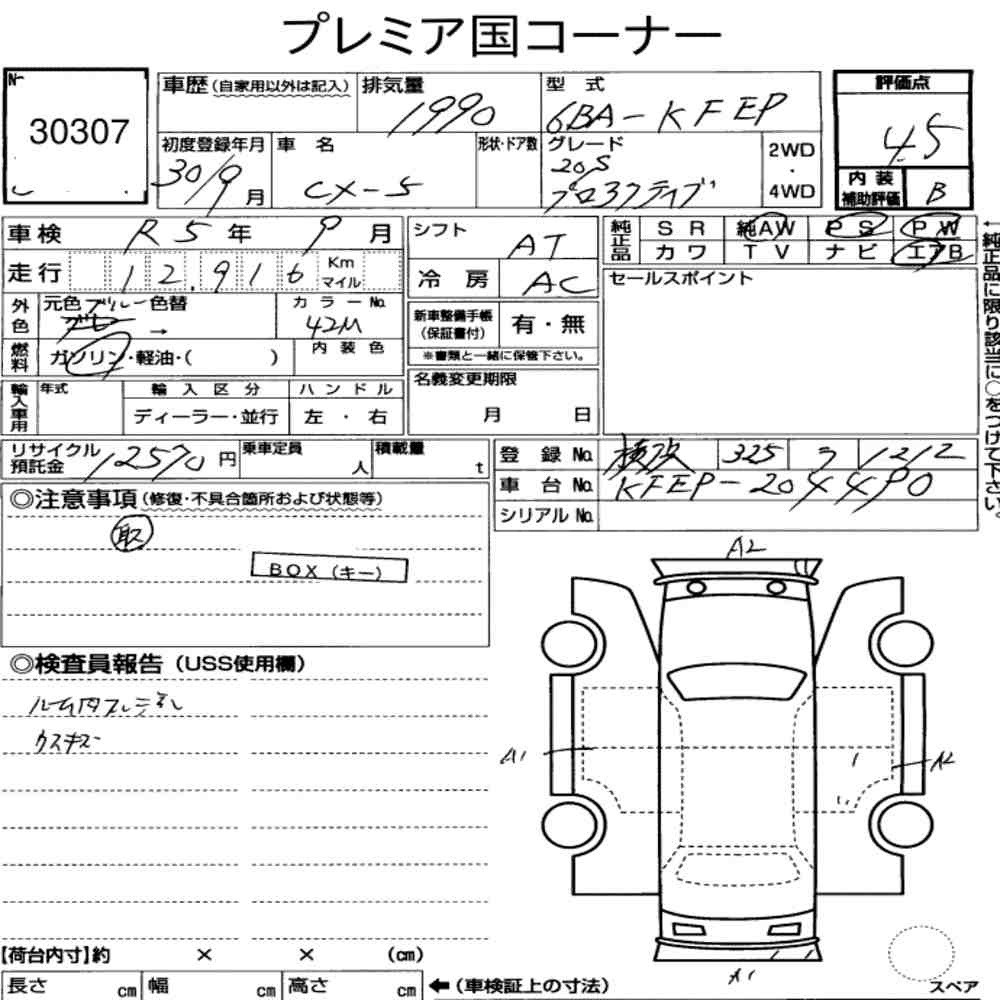 プレミア国コーナー
No
30307
車歴（自家用以外は記入） 排気量 型 式 評価点
1990 6BA-KFEP 4.5
初度登録年月 車 名 形状・ドア数 グレード 2WD
30/9月 CX-5 20S ・ 4WD
プロアクティブ
内 装 補助評価 B
車 検 R5年 9月 シフト AT 純正品 SR 純AW PS PW
走 行 12,916 Km マイル 冷 房 AC カワ TV ナビ エアB
セールスポイント
外色 元色 ブルー 色替 → カラーNo. 42M 新車整備手帳（保証書付） 有・無
燃料 ガソリン・軽油・（ ） 内 装 色 ※書類と一緒に保管下さい。
輸入車用 年式 輸 入 区 分 ハ ン ド ル 名義変更期限
ディーラー・並行 左 ・ 右 月 日
←純正品に限り該当に○をつけて下さい。
リサイクル預託金 12570円 乗車定員 人 積載量 t 登 録 No. 325 1212
車 台 No. KFEP-204490
シリアル No.
◎注意事項（修復・不具合箇所および状態等）
取
BOX（キー）
◎検査員報告（USS使用欄）
ルーム内
ウスキズ
A2
A1
A2
A1
【荷台内寸】約 × × （cm）
長さ cm 幅 cm 高さ cm ←（車検証上の寸法） スペア